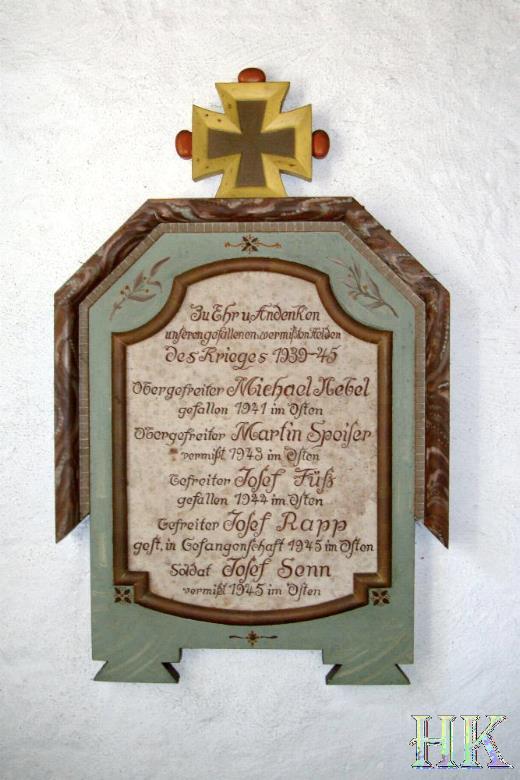 Zu Ehr u. Andenken
unseren gefallenen u. vermißten Helden
des Krieges 1939-45
Obergefreiter Michael Nebel
gefallen 1941 im Osten
Obergefreiter Martin Speiser
vermißt 1943 im Osten
Gefreiter Josef Füß
gefallen 1944 im Osten
Gefreiter Josef Rapp
gest. in Gefangenschaft 1945 im Osten
Soldat Josef Senn
vermißt 1945 im Osten
HK